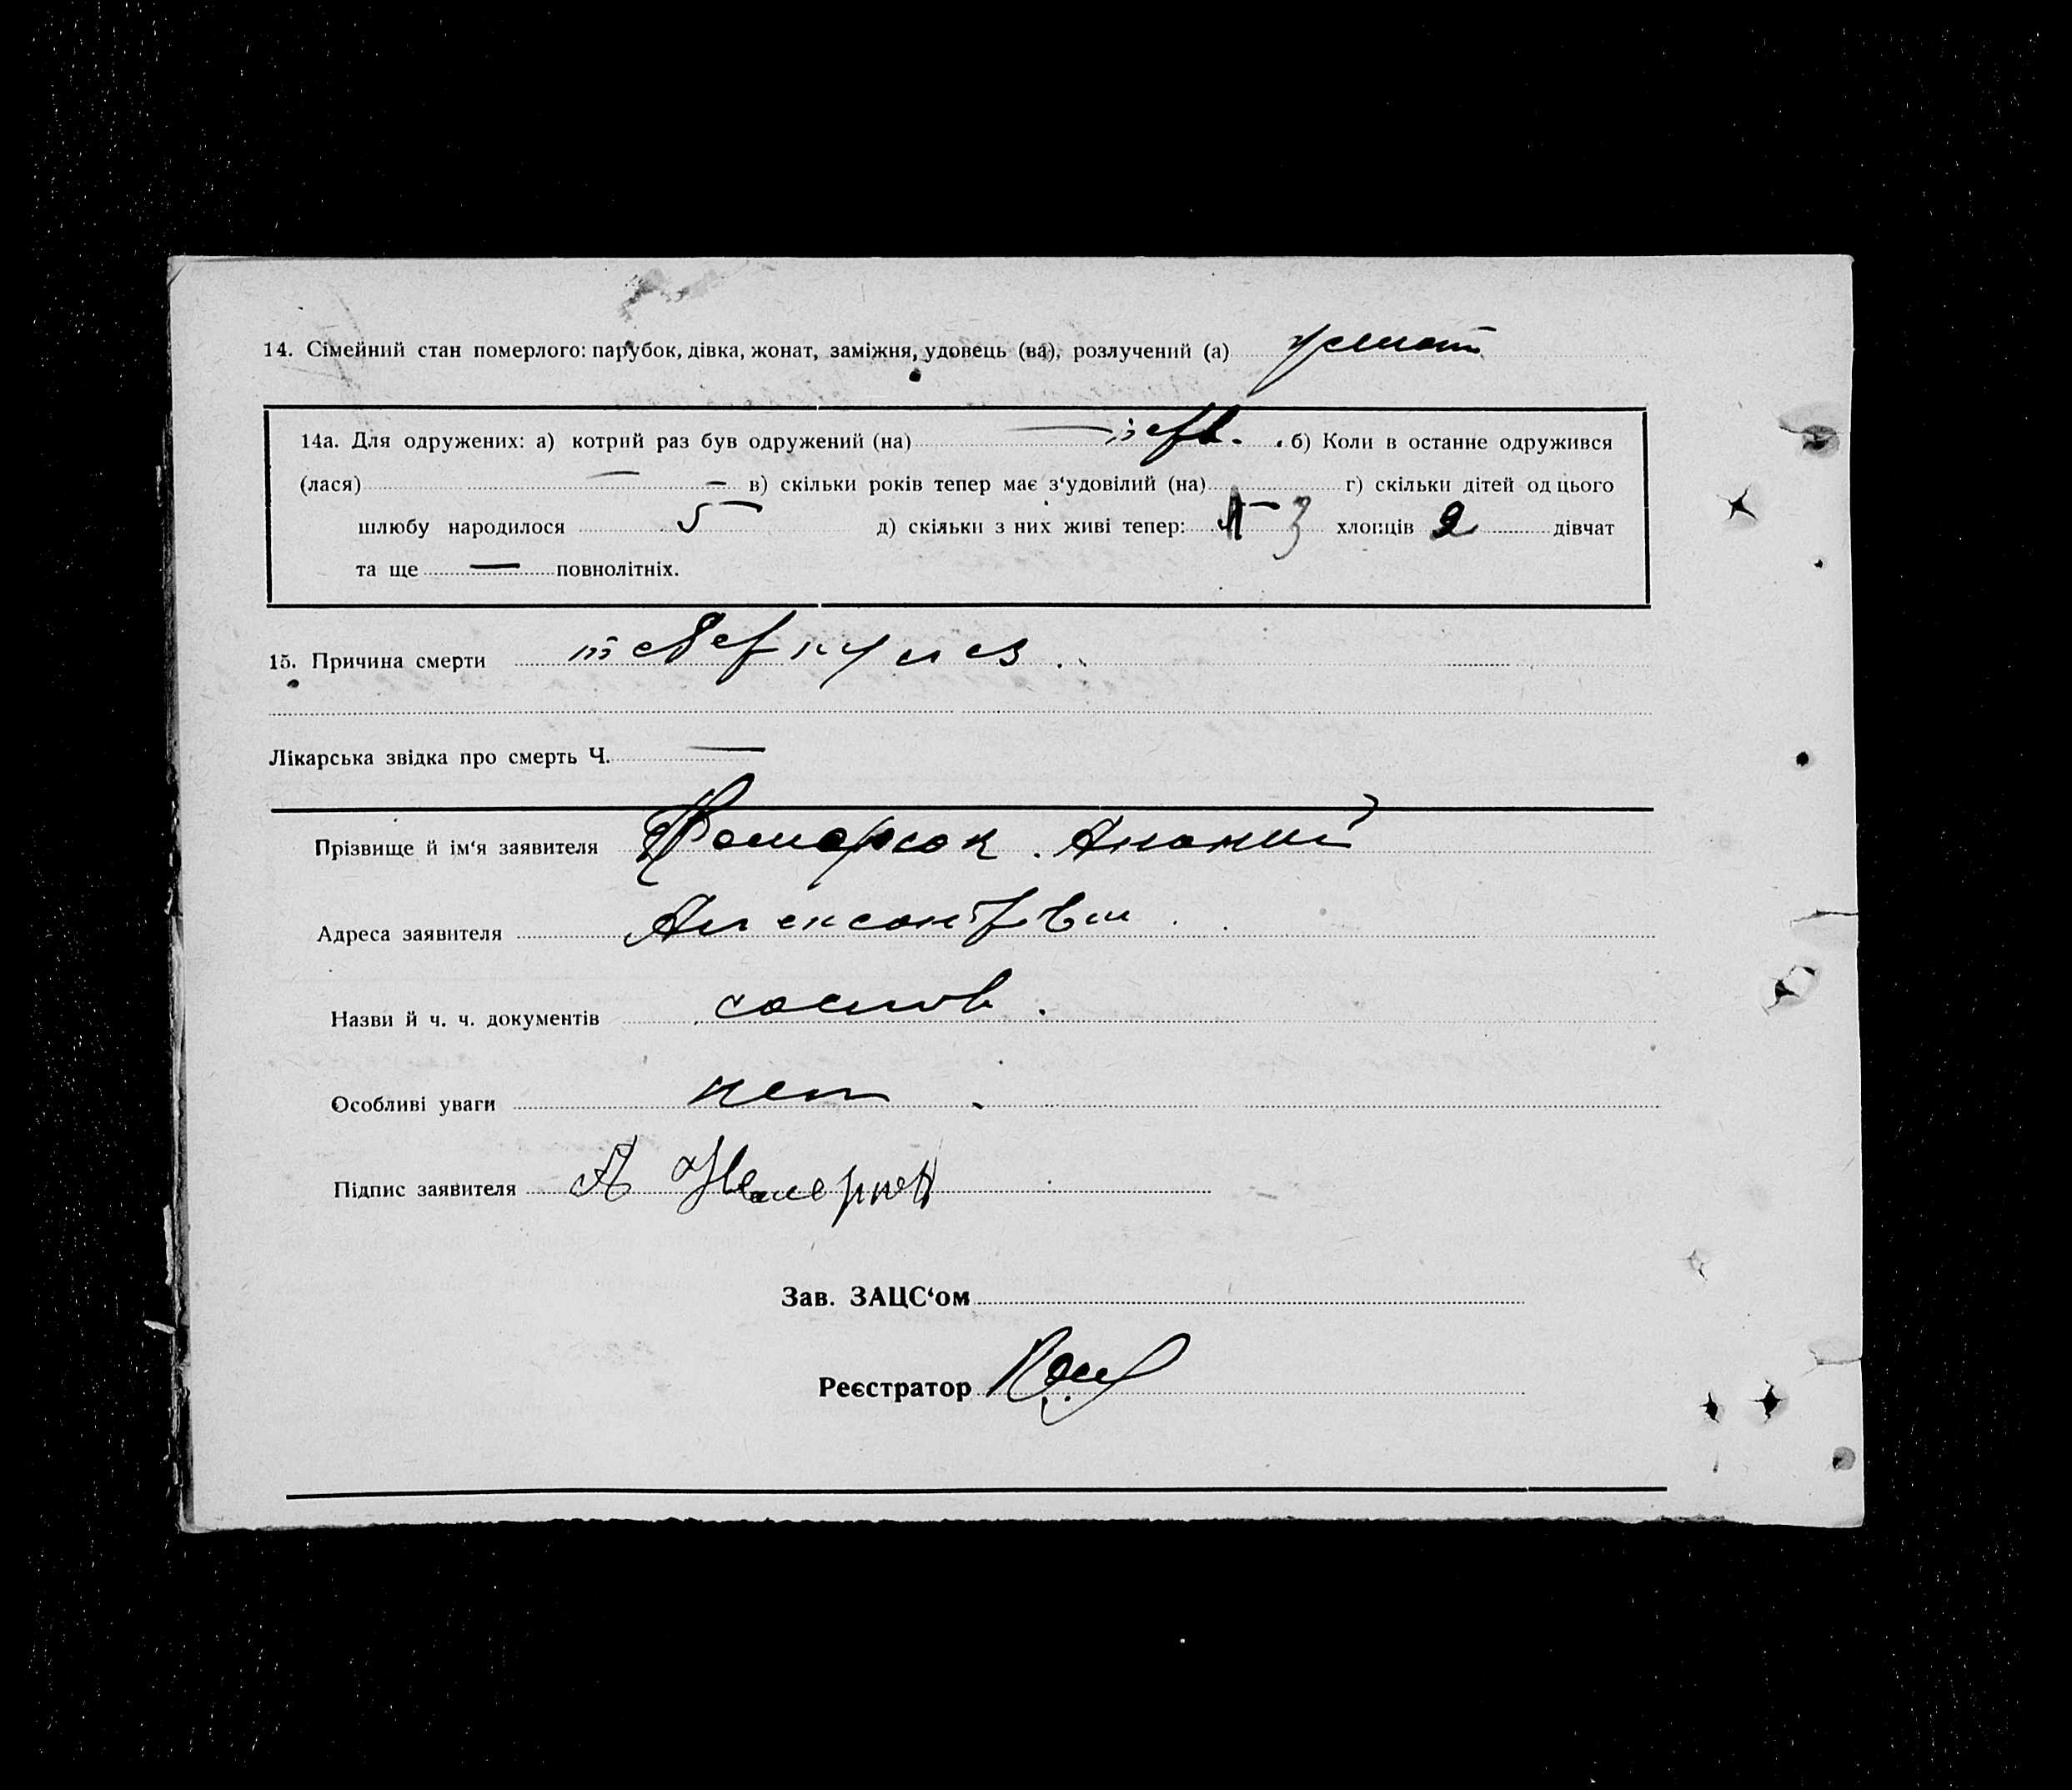 14. Сімейний стан померлого: парубок, дівка, жонат, заміжня, удовець (ва), розлучений (а)
14а. Для одружених: а) котрий раз був одружений (на) перв. б) Коли в останнє одружився
(лася) — – в) скільки років тепер має з‘удовілий (на) г) скільки дітей од цього
шлюбу народилося 5 д) скільки з них живі тепер: 3 хлопців 2 дівчат
та ще — повнолітніх.
15. Причина смерти теберкулез.
Лікарська звідка про смерть Ч. —
Прізвище й ім‘я заявителя Ананий
Адреса заявителя
Назви й ч. ч. документів
Особливі уваги нет.
Підпис заявителя А
Зав. ЗАЦС‘ом
Реєстратор